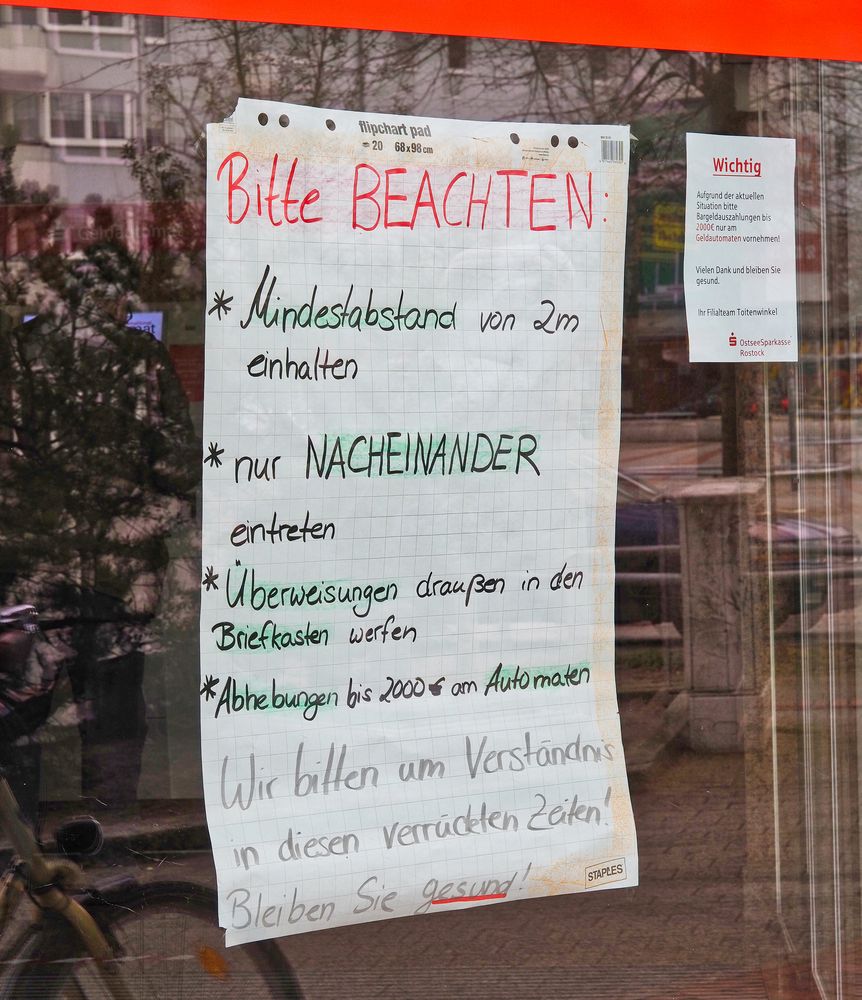 flipchart pad
20 68x98cm
Bitte BEACHTEN:
* Mindestabstand von 2m
einhalten
* nur NACHEINANDER
eintreten
* Überweisungen draußen in den
Briefkasten werfen
* Abhebungen bis 2000€ am Automaten
Wir bitten um Verständnis
in diesen verrückten Zeiten!
Bleiben Sie gesund!
STAPLES
Wichtig
Aufgrund der aktuellen
Situation bitte
Bargeldauszahlungen bis
2000€ nur am
Geldautomaten vornehmen!
Vielen Dank und bleiben Sie
gesund.
Ihr Filialteam Toitenwinkel
OstseeSparkasse
Rostock